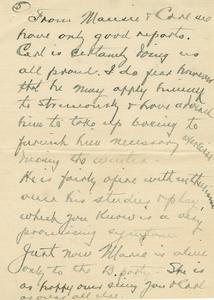 5
From Maurie & Carl we
have only good reports.
Carl is certainly doing us
all proud. I do fear however
that he may apply himself
to strenuously & have advised
him to take up boxing to
furnish him necessary
during the winter.
He is fairly afire with enthusiasm
over his studies & play,
which you know is a very
promising
Just now Marie is alone
only to the B. party. She is
as happy over